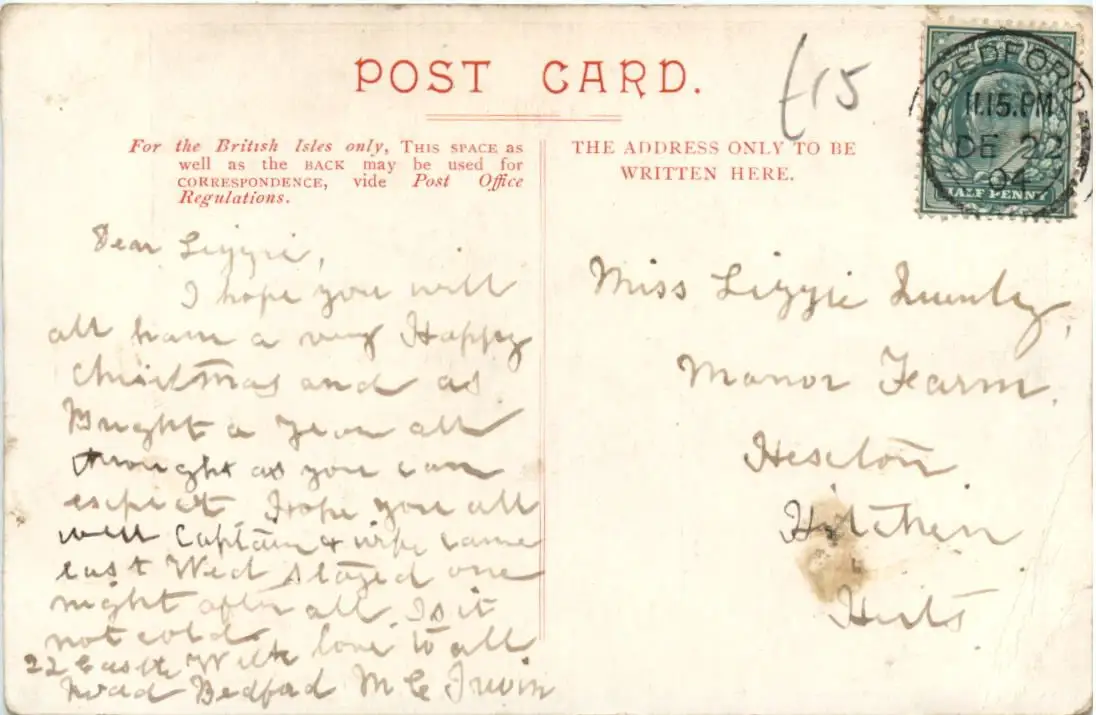 POST CARD.
£15
BEDFORD
11.15.PM
DE 22
04
HALF PENNY
For the British Isles only, THIS SPACE as
well as the BACK may be used for
CORRESPONDENCE, vide Post Office
Regulations.
THE ADDRESS ONLY TO BE
WRITTEN HERE.
Dear Lizzie,
I hope you will
all have a very Happy
Christmas and as
Bright a Year all
through as you can
expect I hope you all
well Captain & wife came
last Wed stayed one
night after all. Is it
not cold
With love to all
22 Castle
Road Bedford M E Irwin
Miss Lizzie
Manor Farm.
Hexton
Hitchin
Herts